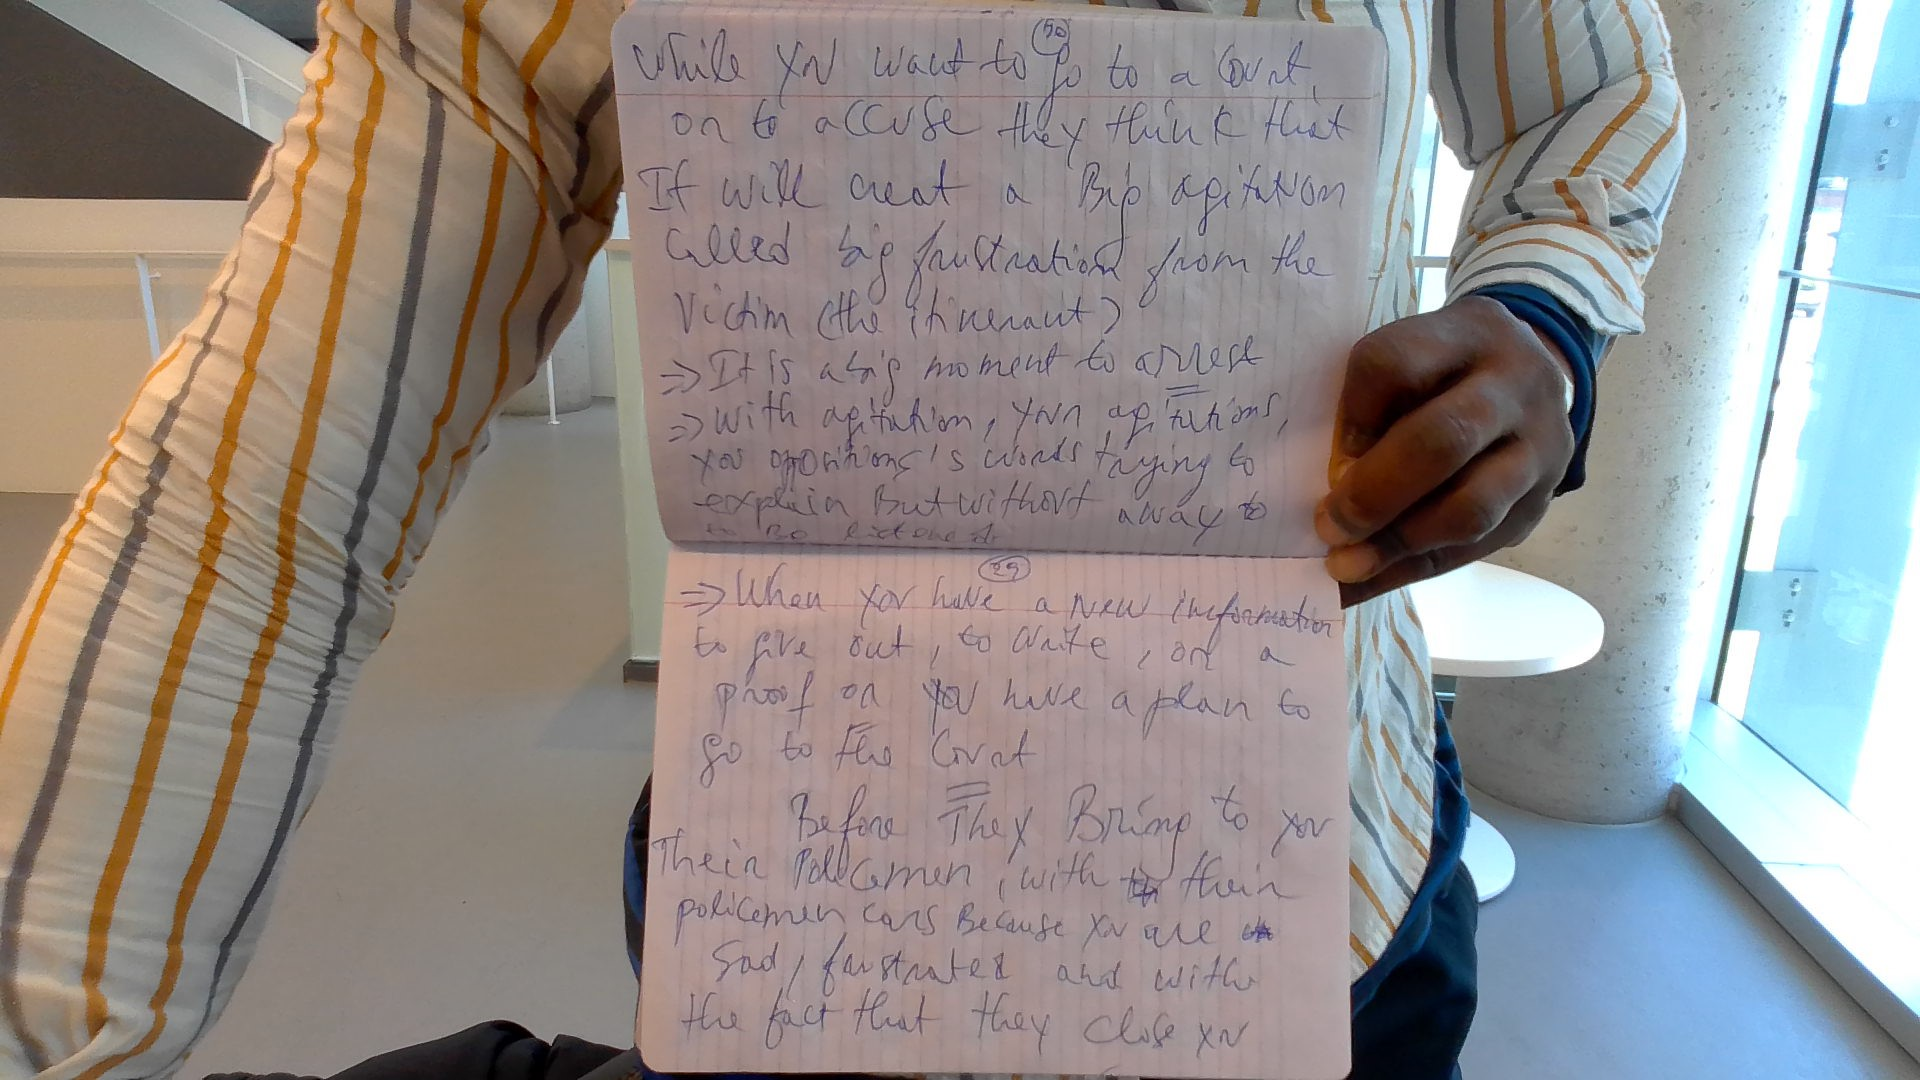 50
while you want to go to a Court,
or to accuse they think that
It will creat a Big agitation
Called big frustration from the
Victim (the itinerant)
⇒ It is a big moment to arrest
⇒ With agitation, your agitations,
you oppositions's words trying to
explain But without away to
to Be
29
⇒ When you have a new information
to give out, to write, or a
proof or you have a plan to
go to the Court
Before They Bring to you
Their Policemen, with their
policemen cars Because you are
Sad, frustrated and with
the fact that they close you